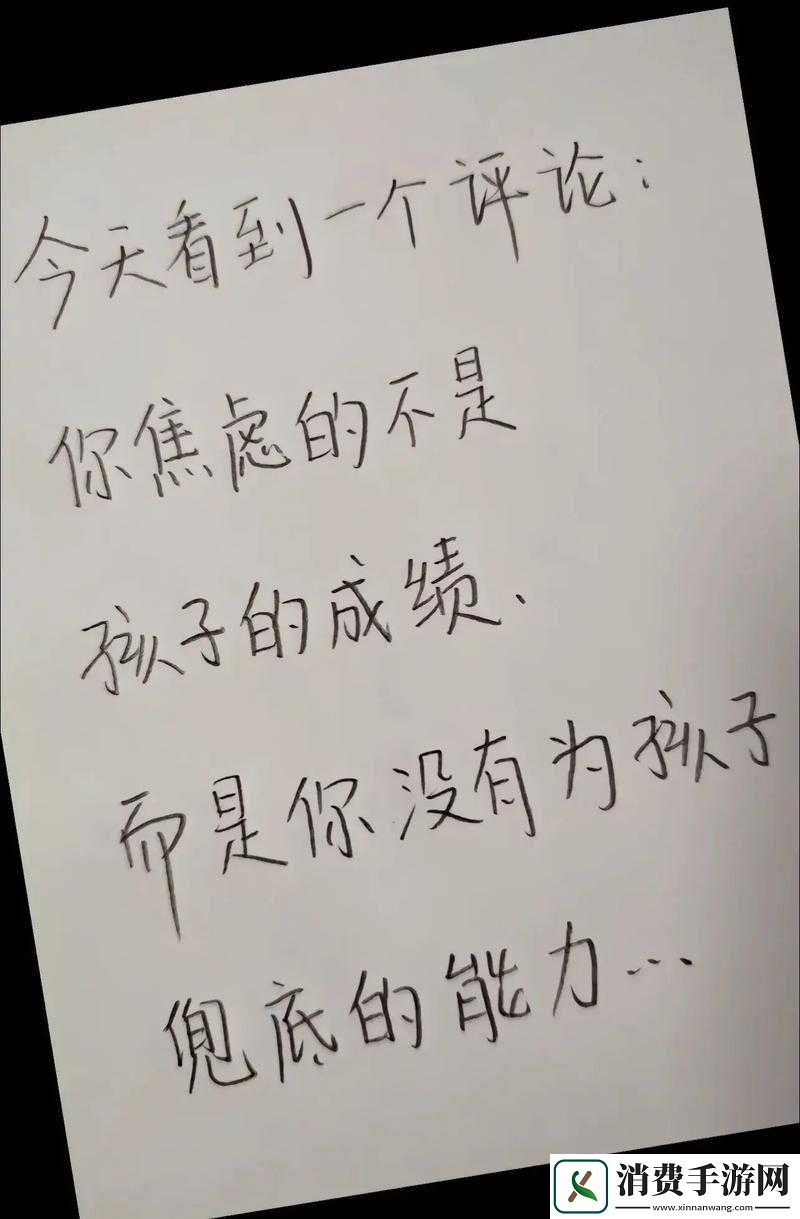 今天看到一个评论：
你焦虑的不是
孩子的成绩、
而是你没有为孩子
兜底的能力…
消费手游网
www.xinnanwang.com